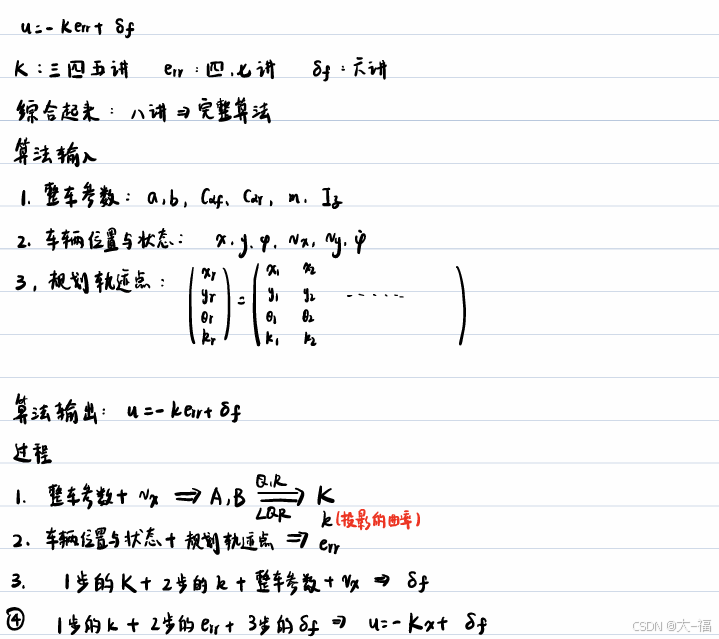 u=-kerr+δf
K:三四五讲 err:四.七讲 δf:六讲
综合起来:八讲⇒完整算法
算法输入
1. 整车参数: a,b, Cαf、Cαr、m. Iz
2. 车辆位置与状态: x.y.φ, vx, vy. φ̇
3, 规划轨迹点:
(xr yr θr kr) = (x1 x2 y1 y2 θ1 θ2 k1 k2 ------)
算法输出: u=-kerr+δf
过程
1. 整车参数+vx ⇒ A,B Q,R ⇒ LQR K
k(投影的曲率)
2. 车辆位置与状态+规划轨迹点 ⇒ err
3. 1步的K+2步的k+整车参数+vx ⇒ δf
④ 1步的k+2步的err+3步的δf ⇒ u=-Kx+δf
CSDN @大一福